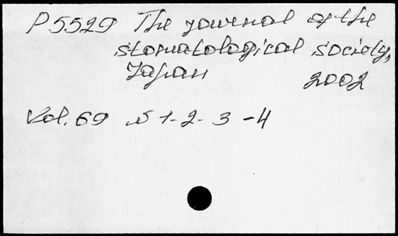 P5529 The journal of the
stomatological society,
Japan 2002
Vol. 69 N 1-2-3-4